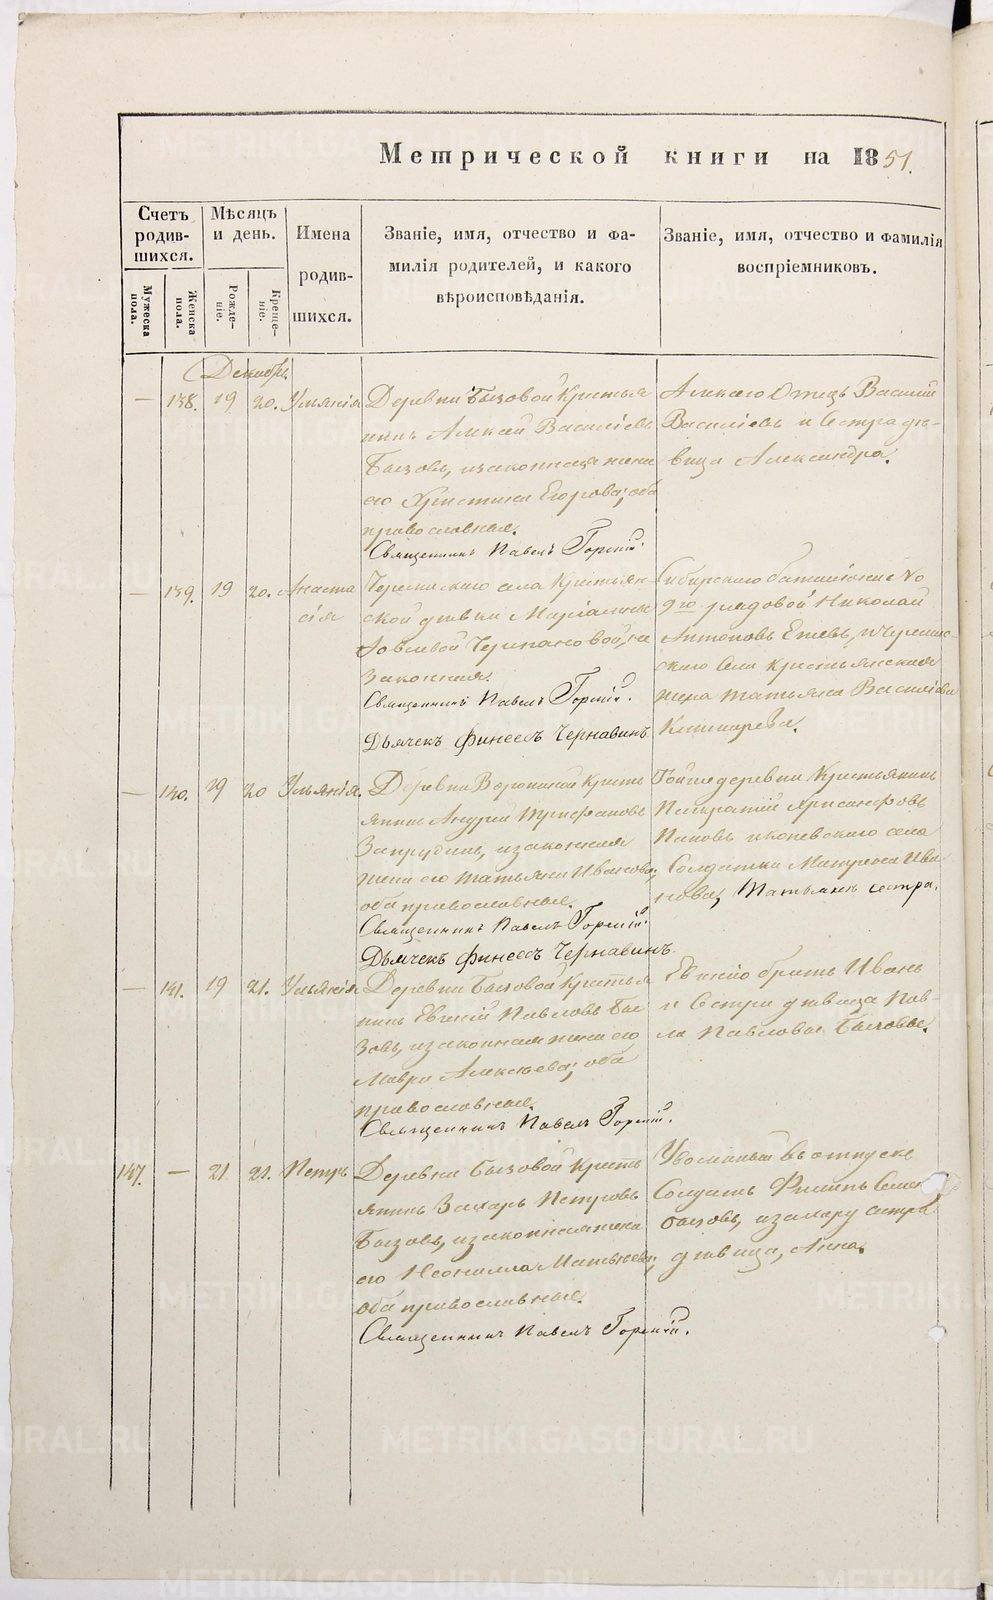 Метрической книги на 1851.
Счетъ родив-шихся.
Мѣсяцъ и день.
Имена родив-шихся.
Званіе, имя, отчество и фа-
милія родителей, и какого
вѣроисповѣданія.
Званіе, имя, отчество и фамилія
воспріемниковъ.
Мужеска пола.
Женска пола.
Рожде-ніе.
Креще-ніе.
Декабрь
— 138. 19 20. Ульянія
Деревни Бызовой Крестья
нинъ Алексей Василіевъ
Бызовъ, изаконная жена
его Христина Егорова; оба
православныя.
Священникъ Павелъ Горный.
Алексея Отецъ Василий
Василіевъ и Сестра дѣ-
вица Александра.
— 139. 19 20. Анаста
сія
села Крестьян
ской дѣвки
не
законная.
Священникъ Павелъ Горный.
Дьячекъ Финеесъ Чернавинъ
Сибирскаго баталіона No
9го рядовой Николай
Антоновъ
скаго Села крестьянская
жена татьяна Василіева
— 140. 19 20 Ульянія.
Деревни Ворониной Кресть
янинъ Андрей
изаконная
жена его татьяна Иванова;
оба православныя.
Священникъ Павелъ Горный.
Дьячекъ Финеесъ Чернавинъ.
Тойже деревни Крестьянинъ
Панкратий Хрисанфовъ
Поповъ села
Солдатка Матрена Ива
нова, сестра.
— 141. 19 21. Ульянія
Деревни Бызовой Крестья
нинъ Евгеній Павловъ Бы
зовъ, изаконная жена его
Мавра Алексѣева; оба
православныя.
Священникъ Павелъ Горный.
Евгенія братъ Иванъ
и Сестра дѣвица Пав-
ла Павловы Бызовы.
147. — 21 21. Петръ
Деревни Бызовой Кресть
янинъ Захаръ Петровъ
Бызовъ, изаконная жена
его Неонилла Матвѣева;
оба православныя.
Священникъ Павелъ Горный.
Уволенный в отпускъ
Солдатъ Филипъ Семен
бызовъ, изахару сестра
дѣвица, Анна.
METRIKI.GASO-URAL.RU